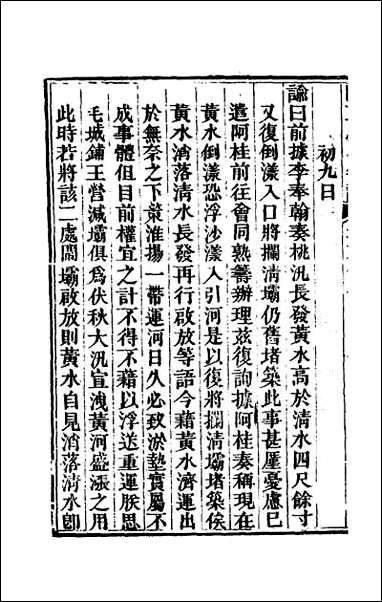 初九日
諭曰前據李奉翰奏桃汛長發黃水高於淸水四尺餘寸
又復倒漾入口將攔淸壩仍舊堵築此事甚厪憂慮已
遣阿桂前往會同熟籌辦理茲復詢據阿桂奏稱現在
黃水倒漾恐浮沙漾入引河是以復將攔淸壩堵築俟
黃水消落淸水長發再行啟放等語今藉黃水濟運出
於無奈之下策淮揚一帶運河日久必致淤墊實屬不
成事體但目前權宜之計不得不藉以浮送重運朕思
毛城鋪王營減壩俱爲伏秋大汛宣洩黃河盛漲之用
此時若將該二處閘壩啟放則黃水自見消落淸水卽